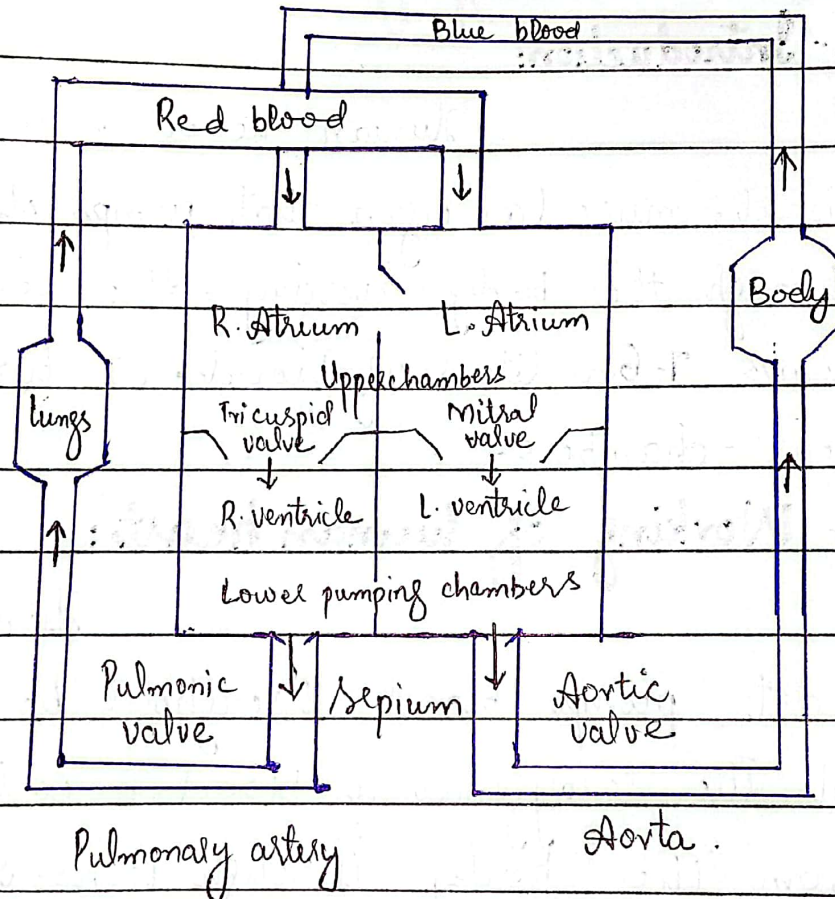 Blue blood
Red blood
Body
R. Atrium L. Atrium
Upper chambers
lungs
Tricuspid
valve
Mitral
valve
R. ventricle L. ventricle
Lower pumping chambers
Pulmonic
valve
Sepium
Aortic
valve
Pulmonary artery
Aorta.